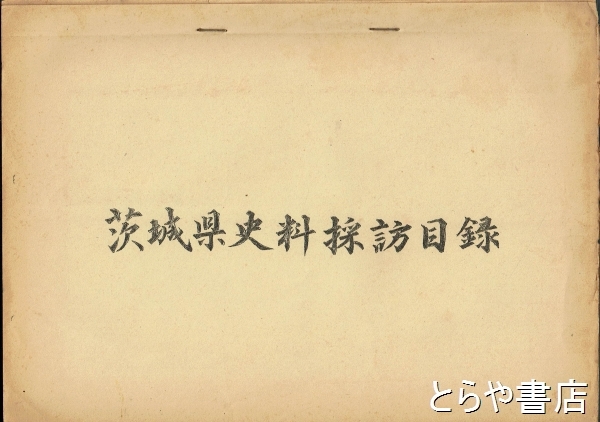 茨城県史料採訪目録
とらや書店